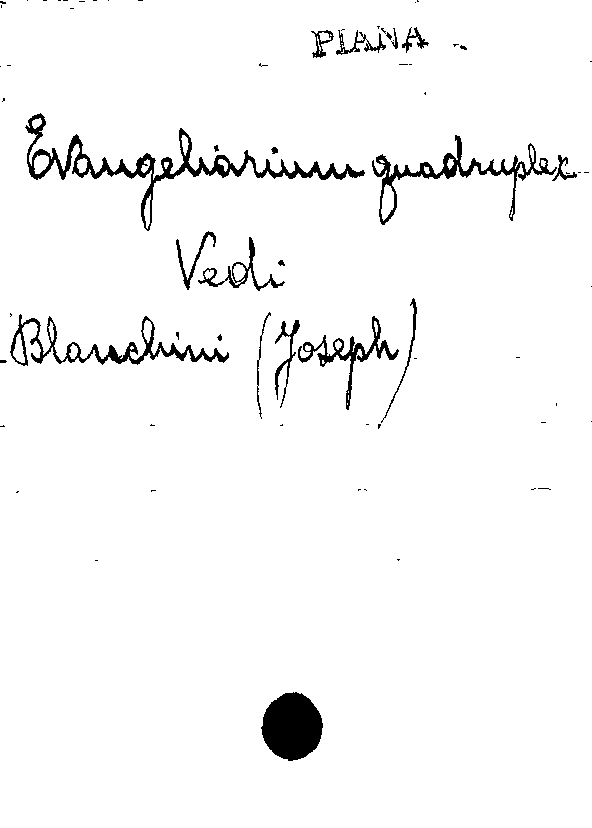 PIANA
Evangeliarium quadruplex
Vedi
Blanchini (Joseph)